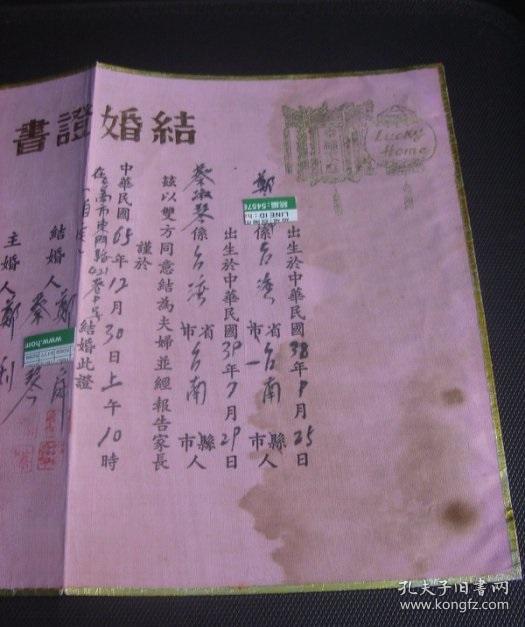 結婚證書
Lucky
Home
鄭 係台灣省台南縣市人
出生於中華民國38年8月25日
蔡淑琴係台灣省市台南縣市人
出生於中華民國39年7月29日
茲以雙方同意結為夫婦並經報告家長
謹於
中華民國65年12月30日上午10時
在台南市東門路421巷 號
結婚此證
結婚人鄭
蔡 琴
主婚人鄭 利
LINE ID:
www.hom
孔夫子旧书网
www.kongfz.com